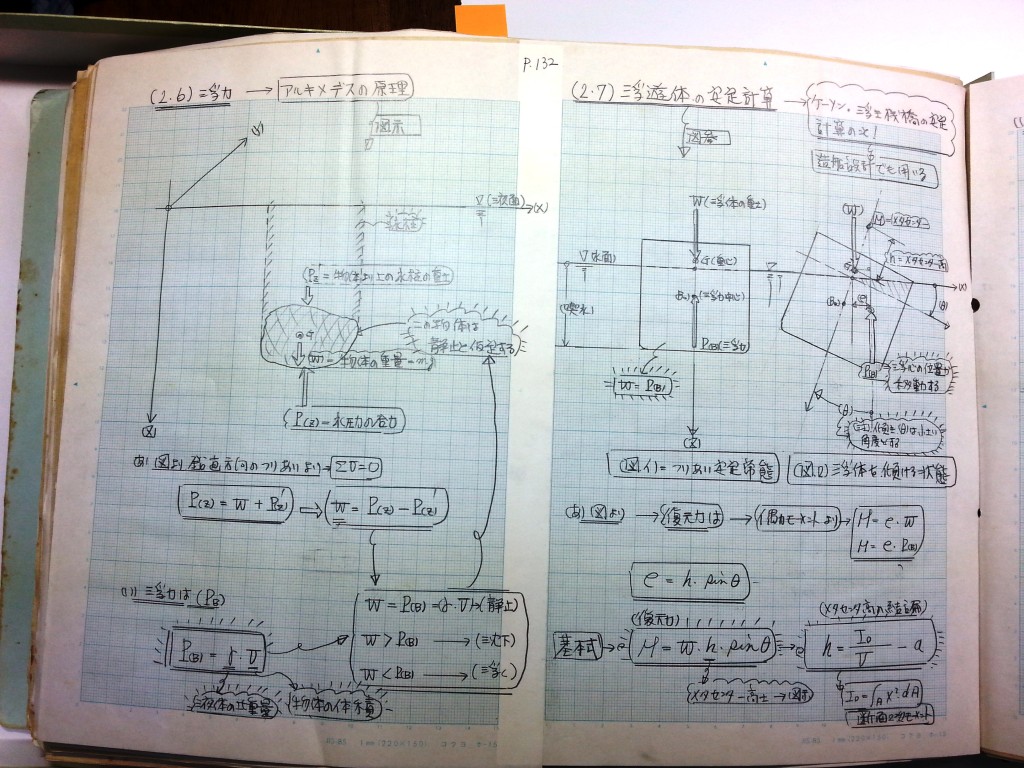 P.132
(2.6) 浮力 → アルキメデスの原理
図示
(y)
▽(液面)
(X)
水柱
P'z = 物体より上の水柱の重さ
G
この物体は
静止と仮定する
W = 物体の重量 = mg
P(z) = 水圧力の合力
(Z)
(あ) 図より 鉛直方向のつりあいより → ΣV=0
P(z) = W + P'(z) ⇒ W = P(z) - P'(z)
(い) 浮力は (PB)
P(B) = γ・V
液体の比重量
物体の体積
W = P(B) = (γ・V) → (静止)
W > P(B) → (沈下)
W < P(B) → (浮く)
(2.7) 浮遊体の安定計算 → ケーソン・浮桟橋の安定
計算の式!
造船設計でも用いる
図示
W (浮体の重さ)
G (重心)
▽(水面)
(喫水)
(浮力中心)
P(B) (浮力)
W = P(B)
(Z)
(W)
M = メタセンター
h = メタセンター高
(X)
(θ)
G
(e)
P(B)
浮心の位置が
移動する
(θ)
(注) 傾き(θ)は小さい
角度とする
(図.1) = つりあい安定状態
(図.2) 浮体を傾ける状態
(あ) 図より → 復元力は → 偶力モーメントより → M = e・W
M = e・P(B)
e = h・sinθ
(復元力)
基本式 → M = W・h・sinθ
メタセンター高さ → 図示
(メタセンタ高の結論)
h = I₀/V - a
I₀ = ∫A x² dA
断面2次モーメント